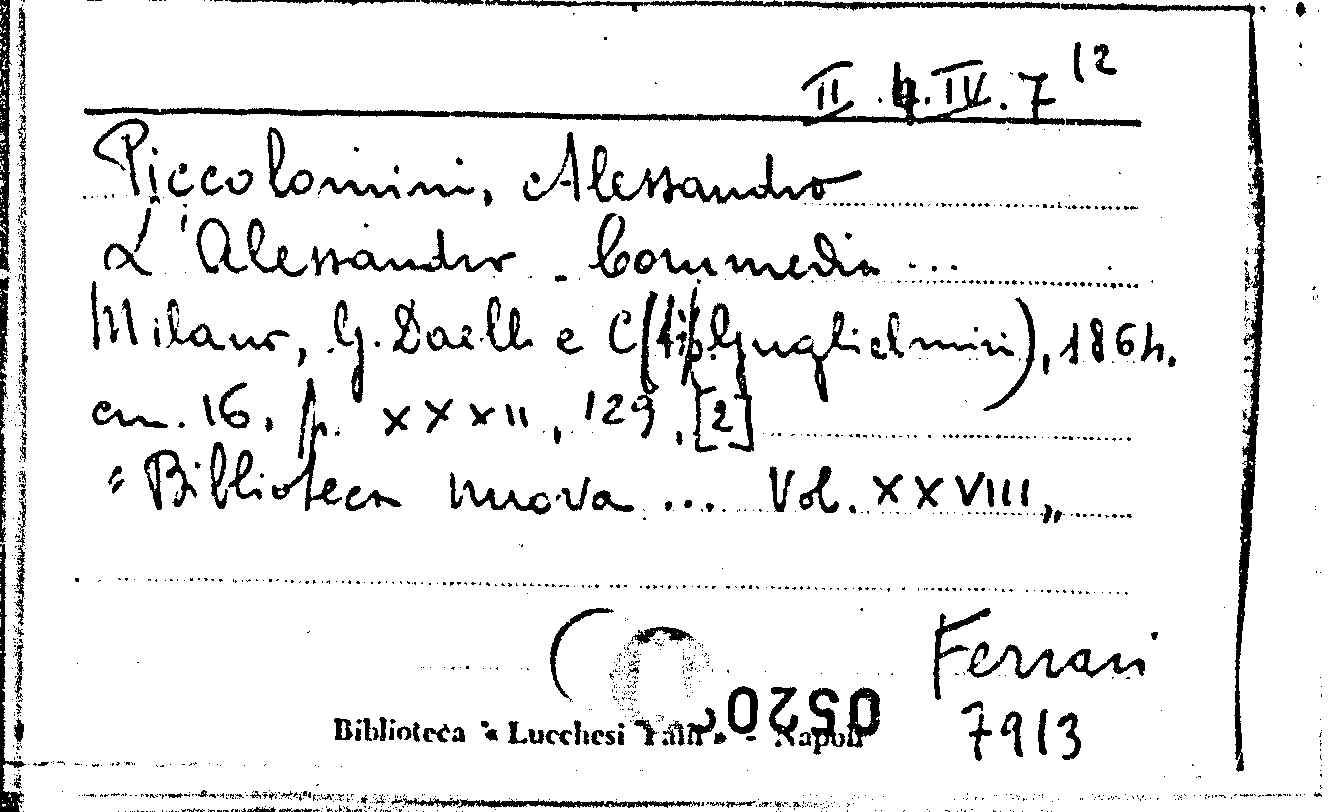 II.4.IV.7 12
Piccolomini, Alessandro
L'Alessandro - Commedia ...
Milano, G. Daelli e C (tip. Guglielmini), 1864.
cm. 16, p. XXXII, 129, [2]
"Biblioteca nuova ... Vol. XXVIII„
Ferrari
0520
Biblioteca « Lucchesi Palli » - Napoli
7913